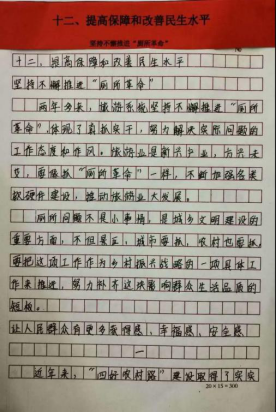 十二、提高保障和改善民生水平
坚持不懈推进“厕所革命”
十二、提高保障和改善民生水平
坚持不懈推进“厕所革命”
两年多来，旅游系统坚持不懈推进“厕所
革命”，体现了真抓实干，努力解决实际问题的
工作态度和作风。旅游业是新兴产业，方兴未
艾，要像抓“厕所革命”一样，不断加强各类
软硬件建设，推动旅游业大发展。
厕所问题不是小事情，是城乡文明建设的
重要方面，不但景区、城市要抓，农村也要抓
要把这项工作作为乡村振兴战略的一项具体工
作来推进，努力补齐这块影响群众生活品质的
短板。
让人民群众有更多获得感、幸福感、安全感
一
近年来，“四好农村路”建设取得了实实
20×15=300